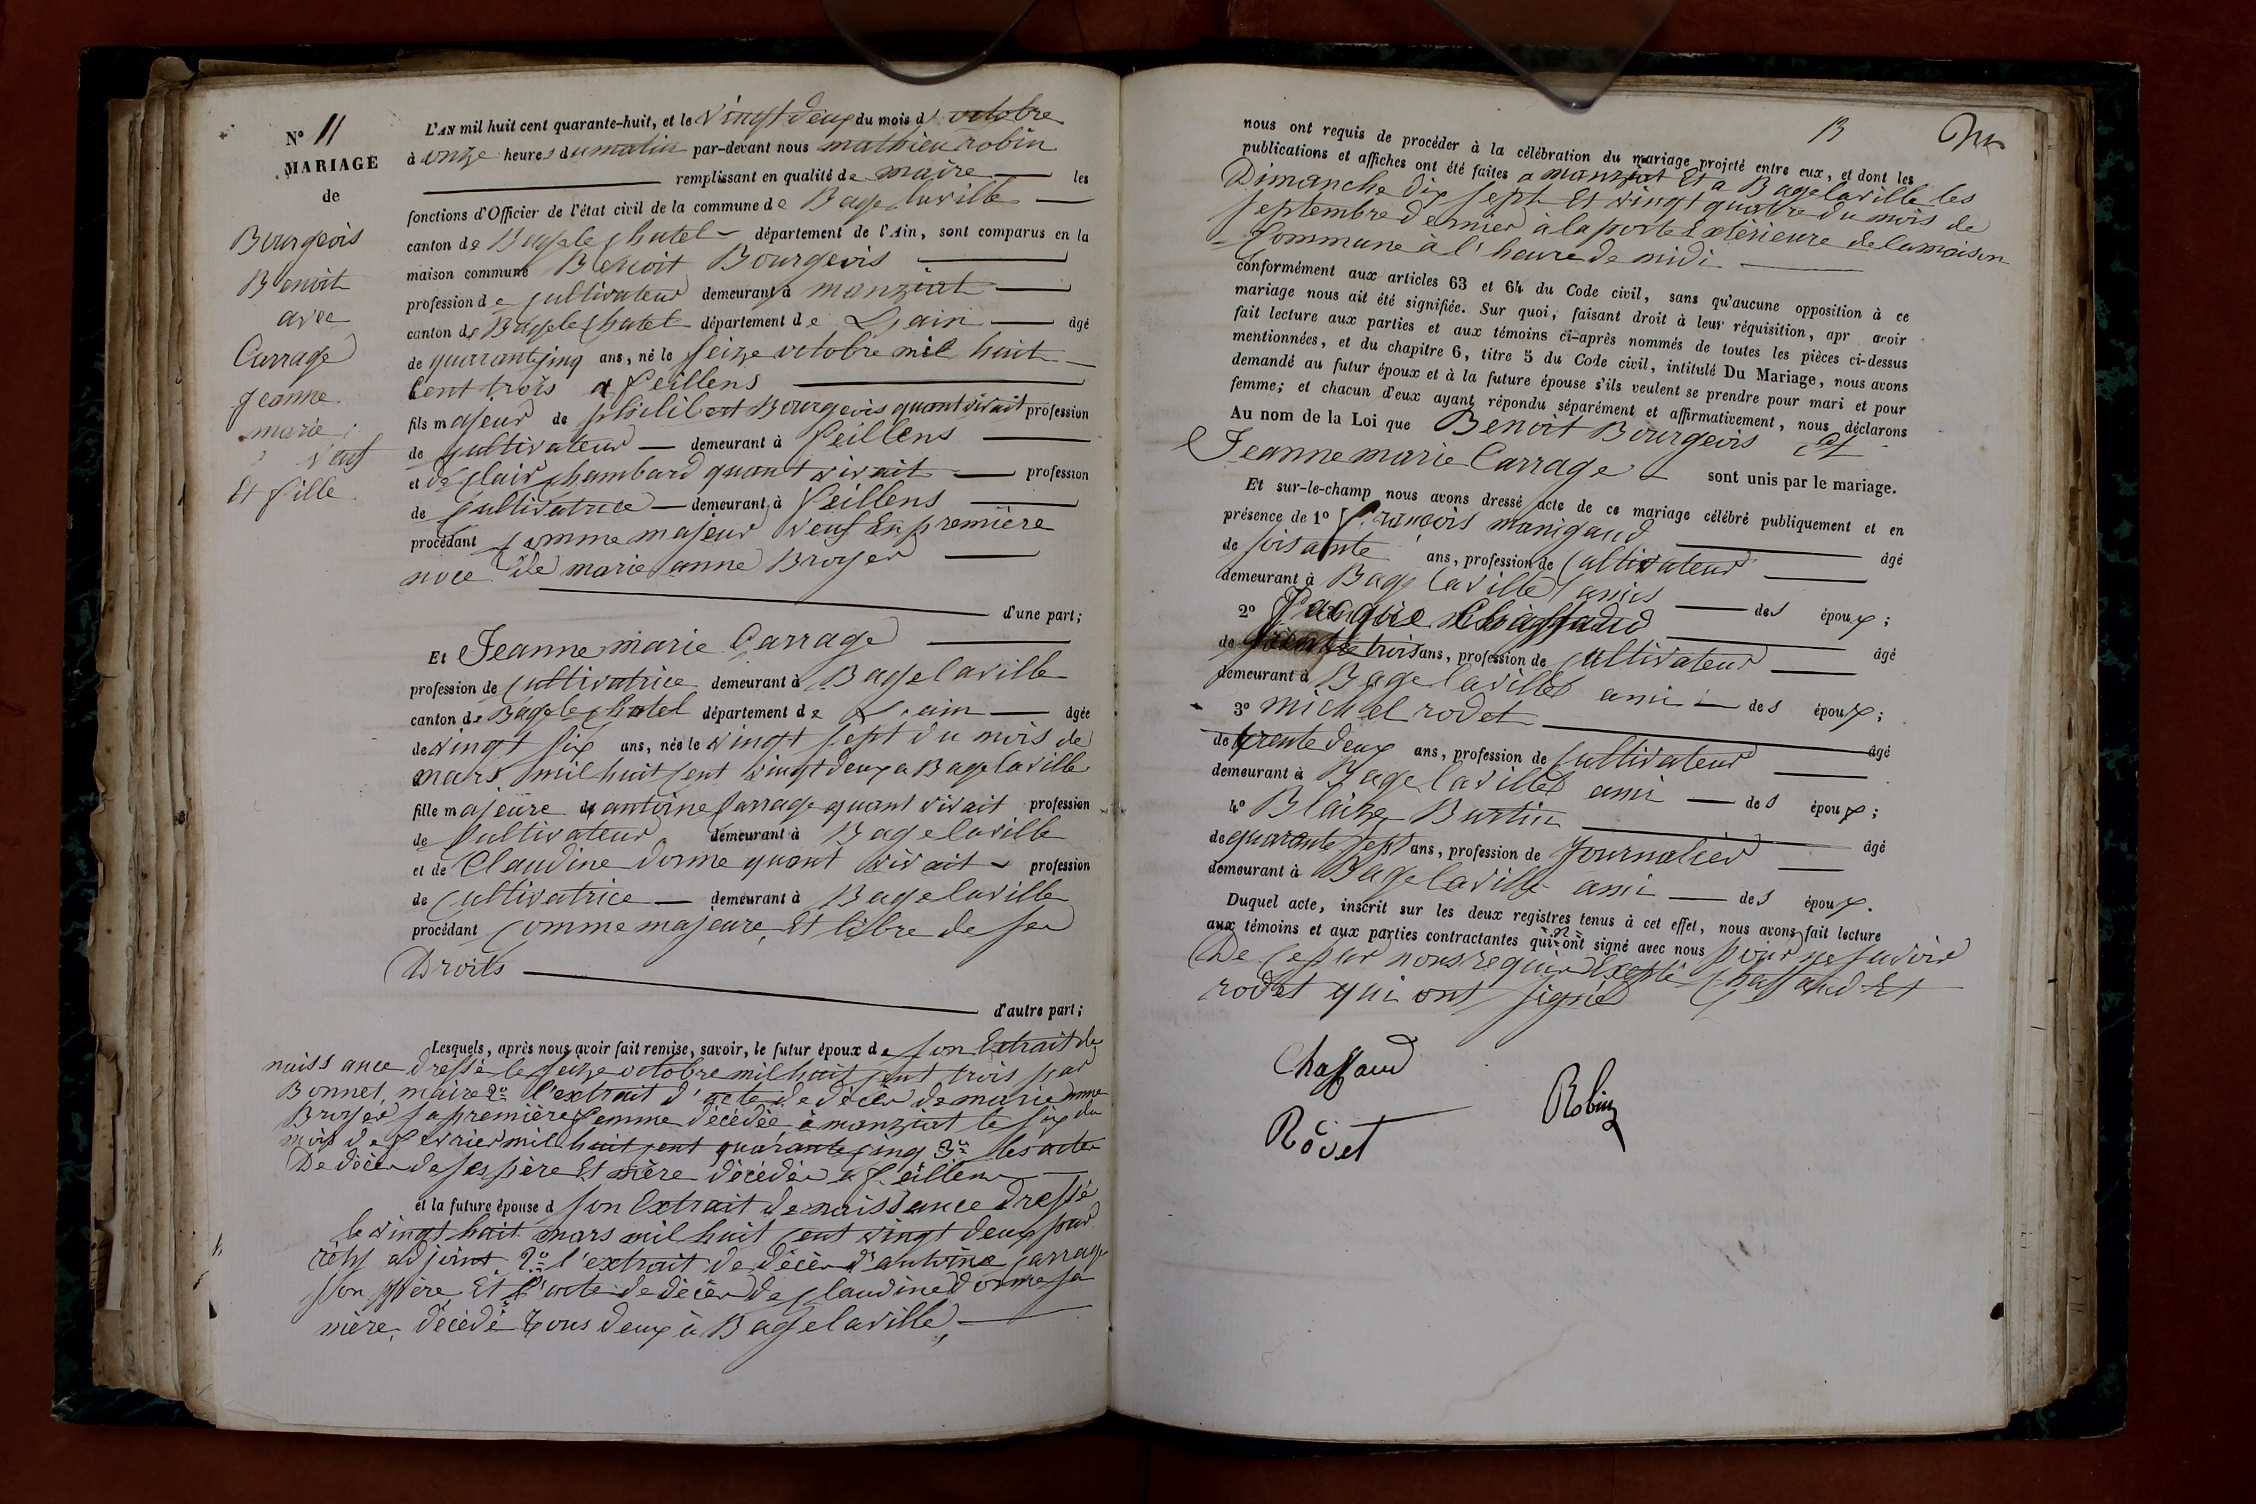 N° 11
MARIAGE
de
Bourgeois
Benoit
avec
Carrage
jeanne
marie
veuf
Et fille
L'AN mil huit cent quarante-huit, et le vingt deux du mois d octobre
à onze heures du matin par-devant nous mathieu robin
remplissant en qualité de maire les
fonctions d'Officier de l'état civil de la commune de Bage laville
canton de Bage le chatel département de l'Ain, sont comparus en la
maison commune Benoit Bourgeois
profession de cultivateur demeurant à manziat
canton de Bage le chatel département de L'ain âgé
de quarante cinq ans, né le seize octobre mil huit
Cent trois a feillens
fils majeur de philibert Bourgeois quant vivait profession
de cultivateur demeurant à feillens
et de clair chambard quant vivait profession
de cultivatrice demeurant à feillens
procédant comme majeur veuf En première
noce de marie anne Broyer
d'une part;
Et Jeanne marie Carrage
profession de cultivatrice demeurant à Bage laville
canton de Bage le chatel département de L'ain âgée
de vingt six ans, née le vingt sept du mois de
mars mil huit cent vingt deux a Bage laville
fille majeure de antoine Carrage quant vivait profession
de cultivateur demeurant à Bage laville
et de Claudine dorme quant vivait profession
de cultivatrice demeurant à Bage laville
procédant comme majeure Et libre de ses
Droits
d'autre part;
Lesquels, après nous avoir fait remise, savoir, le futur époux de son Extrait de
naissance dressé le seize octobre mil huit cent trois par
Bonnet, maire 2° l'extrait d'acte de décès de marie anne
Broyer sa première femme décédée à manziat le six du
mois de fevrier mil huit cent quarante cinq 3° les actes
De décès de ses père Et mère décédés a feillens
et la future épouse d son Extrait de naissance dressé
le vingt huit mars mil huit cent vingt deux par
adjoint 2° l'extrait de décès d'antoine carrage
son père Et l'acte de décès de claudine dorme sa
mère, décédé tous deux à Bage laville
B
nous ont requis de procéder à la célébration du mariage projeté entre eux, et dont les
publications et affiches ont été faites a manziat Et a Bage laville les
Dimanche dix sept Et vingt quatre du mois de
septembre dernier à la porte Extérieure de la maison
Commune à l'heure de midi
conformément aux articles 63 et 64 du Code civil, sans qu'aucune opposition à ce
mariage nous ait été signifiée. Sur quoi, faisant droit à leur réquisition, apr avoir
fait lecture aux parties et aux témoins ci-après nommés de toutes les pièces ci-dessus
mentionnées, et du chapitre 6, titre 5 du Code civil, intitulé Du Mariage, nous avons
demandé au futur époux et à la future épouse s'ils veulent se prendre pour mari et pour
femme; et chacun d'eux ayant répondu séparément et affirmativement, nous déclarons
Au nom de la Loi que Benoit Bourgeois Et
Jeanne marie Carrage sont unis par le mariage.
Et sur-le-champ nous avons dressé acte de ce mariage célébré publiquement et en
présence de 1° François manigaud âgé
de soisante ans, profession de cultivateur
demeurant à Bage laville amis des époux;
2° Chassaud âgé
de trois ans, profession de cultivateur
demeurant à Bage laville ami des époux;
3° michel rodet âgé
de trente deux ans, profession de cultivateur
demeurant à Bage laville ami des époux;
4° Blaize Burtin âgé
de quarante sept ans, profession de journalier
demeurant à Bage laville ami des époux.
Duquel acte, inscrit sur les deux registres tenus à cet effet, nous avons fait lecture
aux témoins et aux parties contractantes qui n'ont signé avec nous pour ne savoir
De ce par nous requis Excepté Chassaud Et
rodet qui ont signé
Chassaud
Rodet
Robin